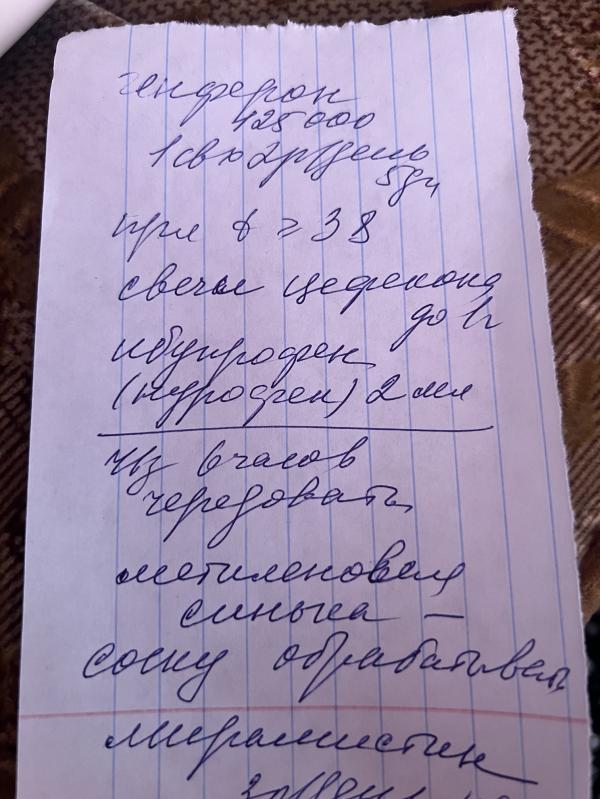 генферон
125000
1 св х 2 р/день
5 дн
при t ≥ 38
свечи цефекона
до 1 г
ибупрофен
(нурофен) 2 мл
чз 6 часов
чередовать
метиленовая
синька —
соску обрабатывать
мирамистин
3 р/день